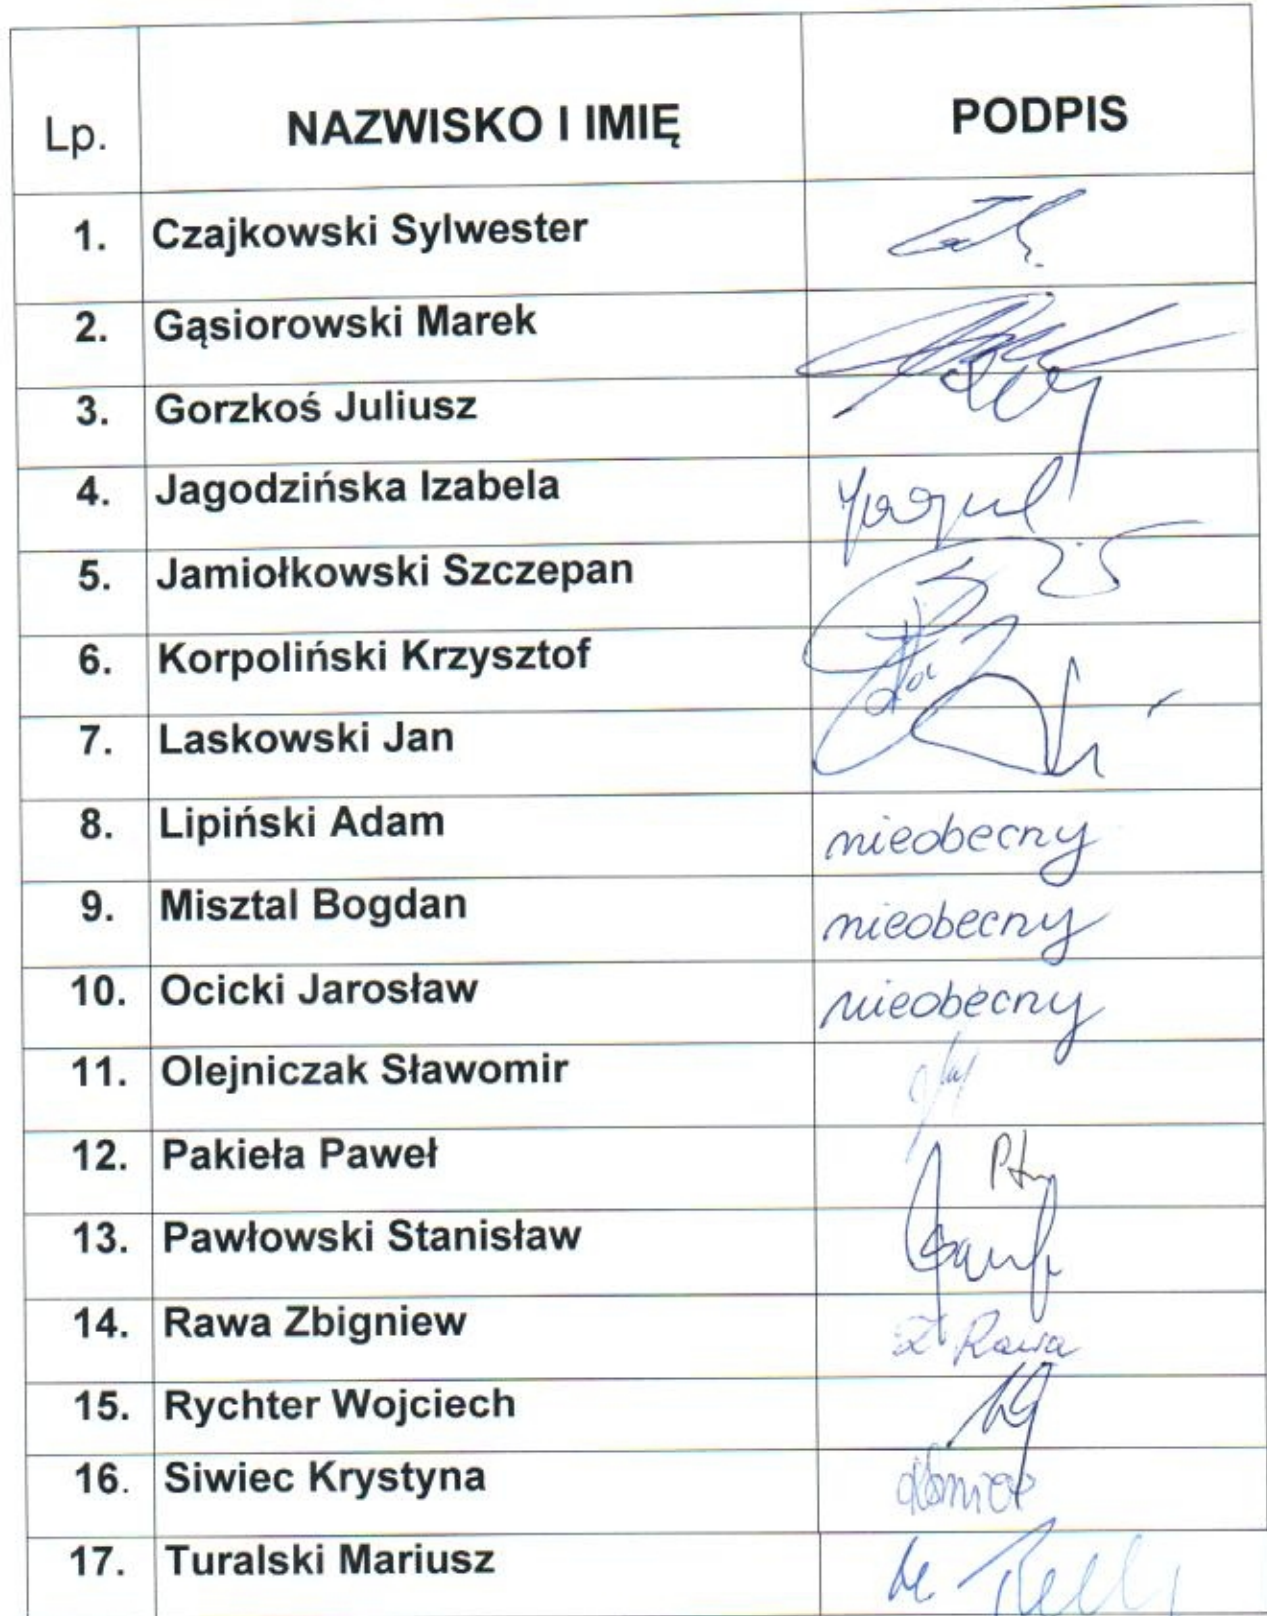 Lp. NAZWISKO I IMIĘ PODPIS
1. Czajkowski Sylwester
2. Gąsiorowski Marek
3. Gorzkoś Juliusz
4. Jagodzińska Izabela
5. Jamiołkowski Szczepan
6. Korpoliński Krzysztof
7. Laskowski Jan
8. Lipiński Adam nieobecny
9. Misztal Bogdan nieobecny
10. Ocicki Jarosław nieobecny
11. Olejniczak Sławomir
12. Pakieła Paweł
13. Pawłowski Stanisław
14. Rawa Zbigniew Z Rawa
15. Rychter Wojciech
16. Siwiec Krystyna
17. Turalski Mariusz